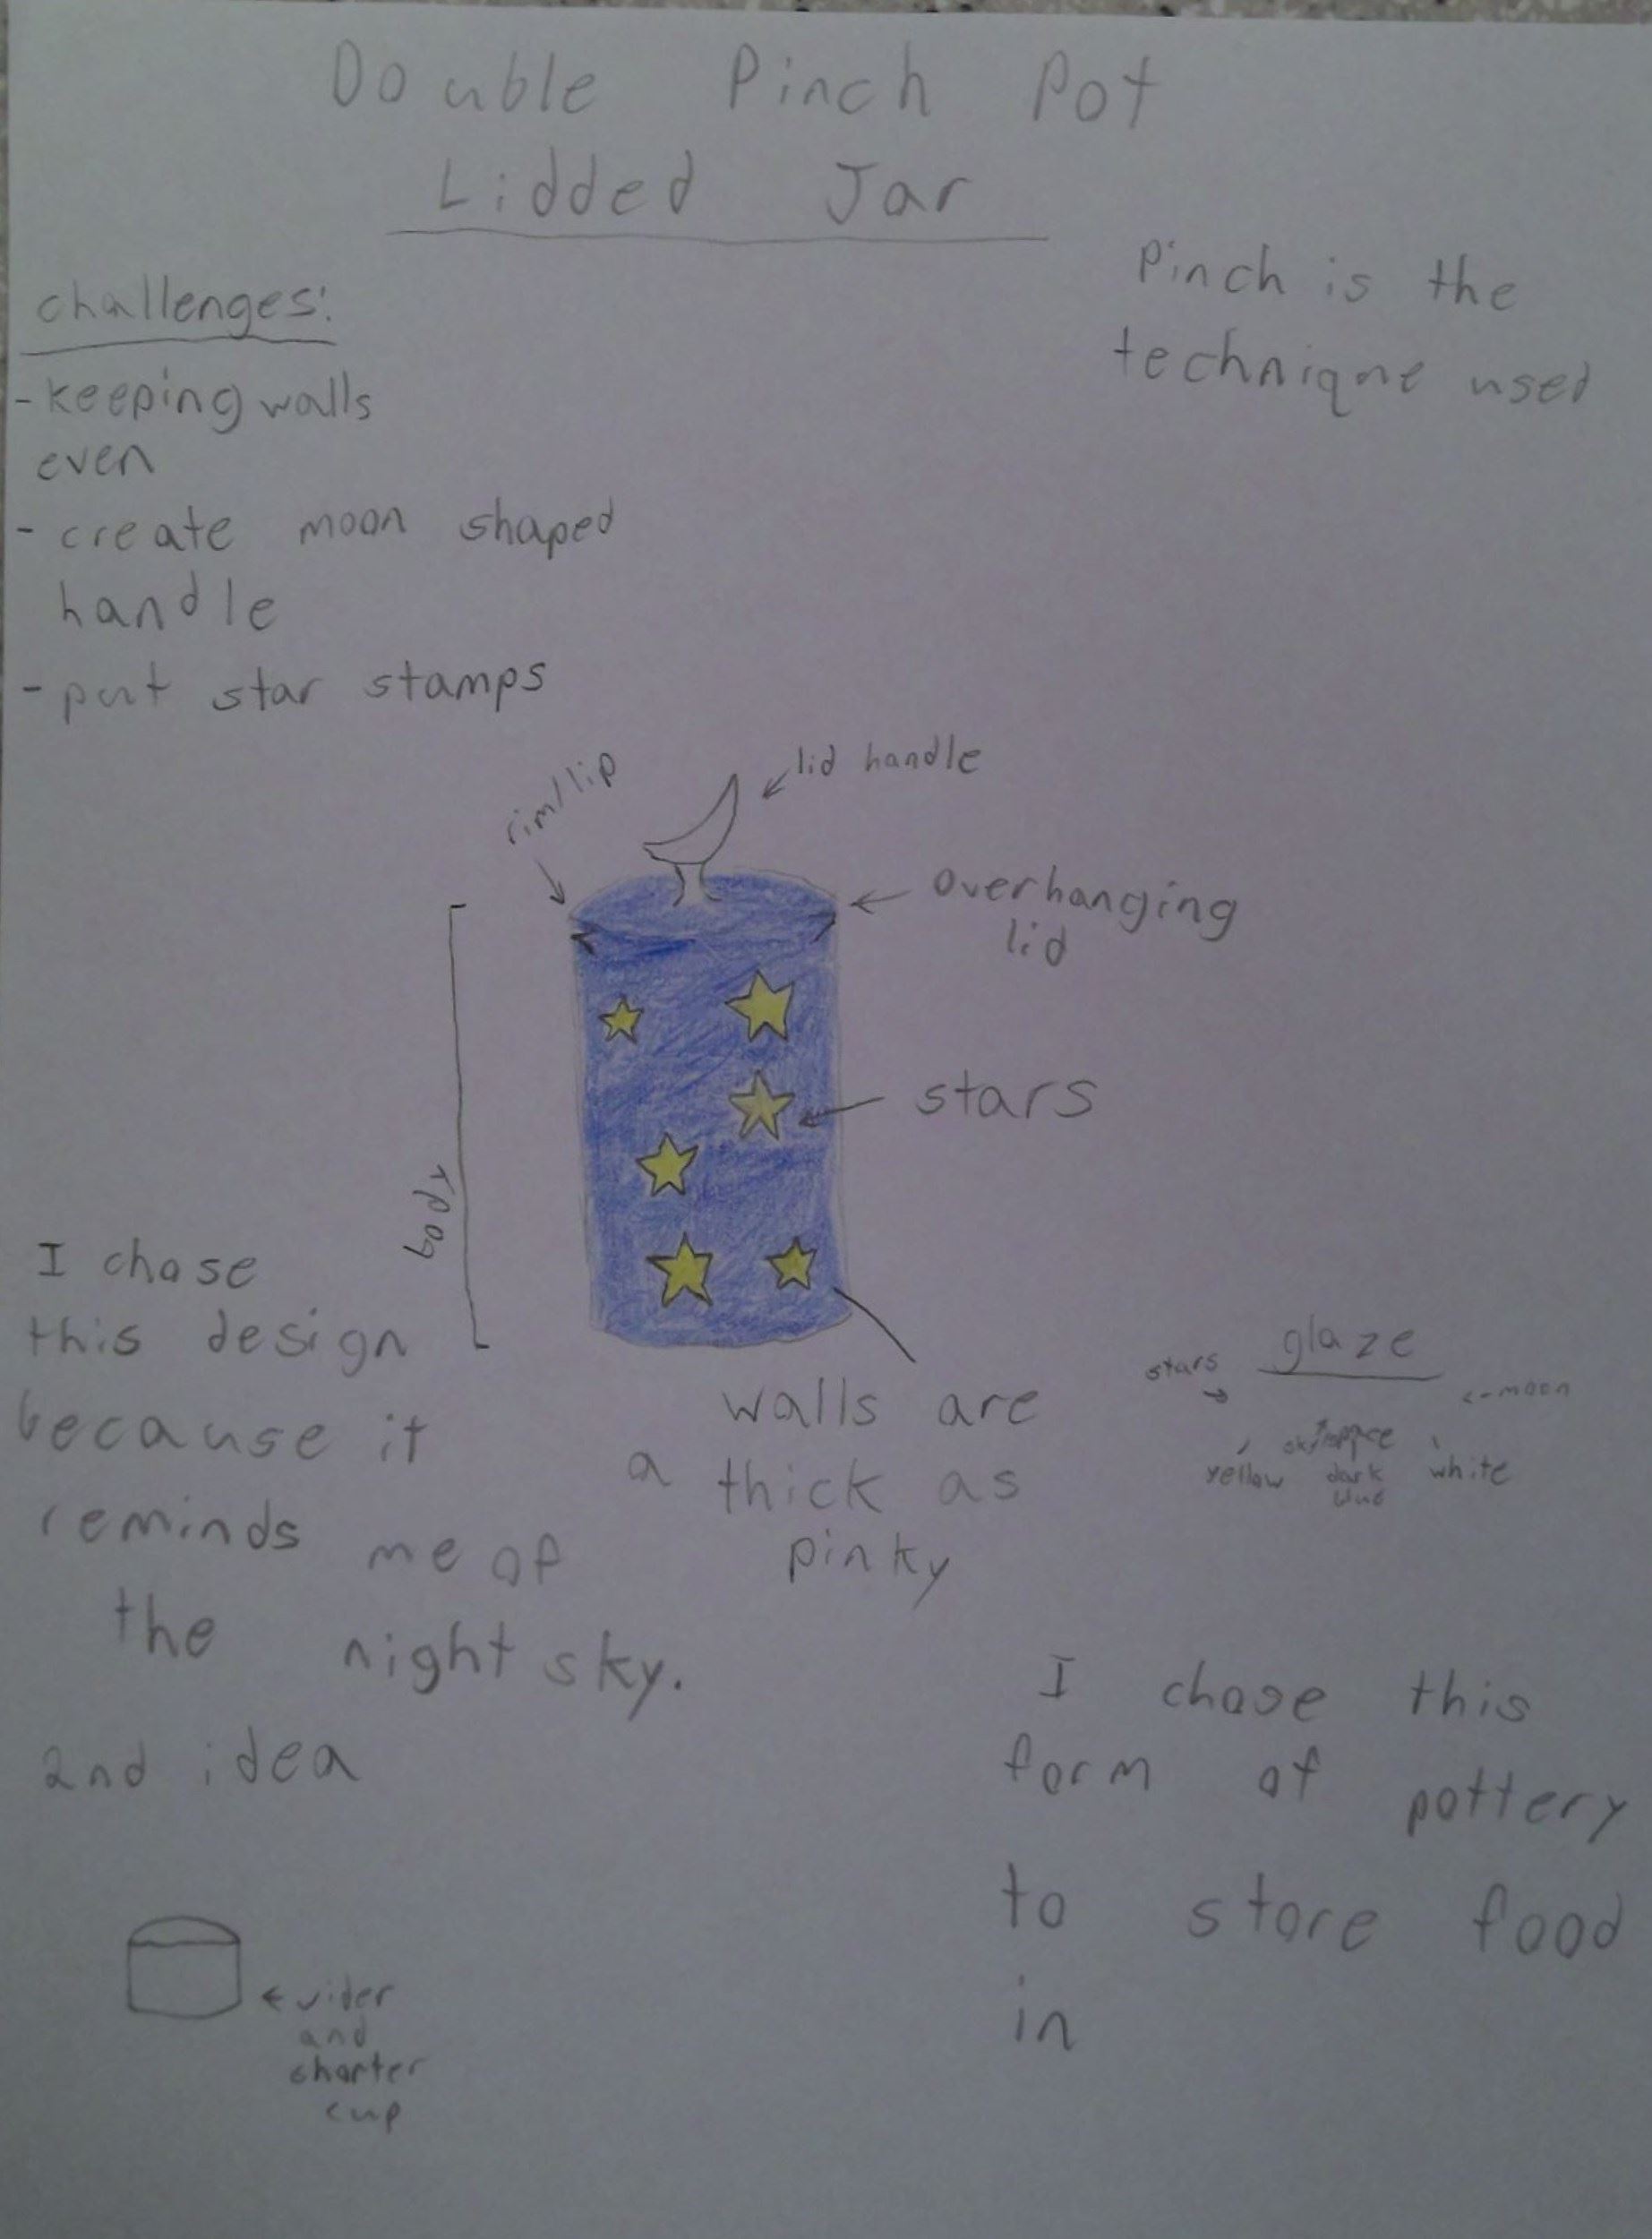 Double Pinch Pot
Lidded Jar
Pinch is the
technique used
challenges:
- keeping walls
even
- create moon shaped
handle
- put star stamps
rim/lip
lid handle
overhanging
lid
stars
body
I chose
this design
because it
reminds me of
the night sky.
walls are
a thick as
pinky
glaze
stars
moon
sky/space
yellow dark white
blue
I chose this
form of pottery
to store food
in
2nd idea
wider
and
shorter
cup